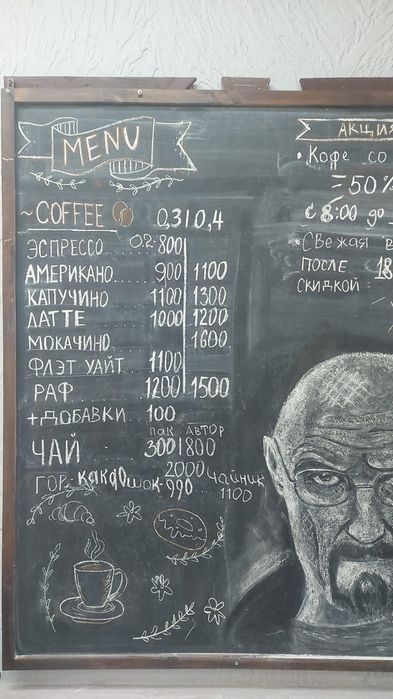 MENU
~COFFEE 0,3 | 0,4
ЭСПРЕССО 0.2-800
АМЕРИКАНО... 900 | 1100
КАПУЧИНО 1100 | 1300
ЛАТТЕ ..... 1000 | 1200
МОКАЧИНО.... 1600
ФЛЭТ УАЙТ 1100
РАФ ...... 1200 | 1500
+ДОБАВКИ 100
ПАК АВТОР
ЧАЙ 300 | 800
2000 чайник
ГОР. какао шок-990 ... 1100
АКЦИЯ
• Кофе со
= 50%
с 8:00 до
• Свежая
ПОСЛЕ 18
СКИДКОЙ